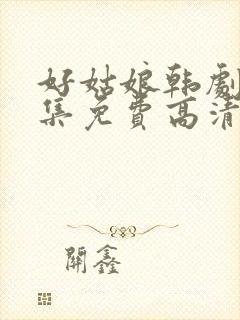 好姑娘韩劇
集免費高清
開鑫